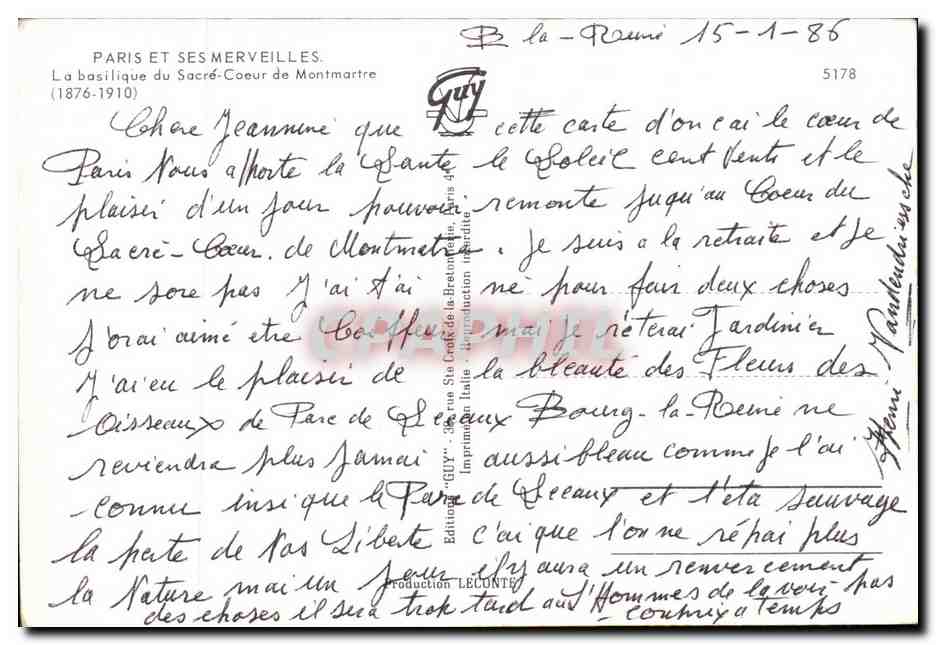 B la-Reine 15-1-86
PARIS ET SES MERVEILLES.
La basilique du Sacré-Coeur de Montmartre
(1876-1910)
5178
Guy
Chere Jeannine que cette carte d'on c'ai le cœur de
Paris Nous apporte la Sante le Soleil cent Vents et le
plaisir d'un jour pouvoir remonte jusqu'au Coeur du
Sacré-Cœur. de Montmatre. Je suis a la retraite et Je
ne sore pas J'ai t'ai né pour fair deux choses
J'orai aimé etre Coiffeur mai Je r'eterai Jardinier
J'ai eu le plaisir de la bleauté des Fleurs des
Oisseaux de Parc de Sceaux Bourg-la-Reine ne
reviendra plus Jamai aussi bleau comme Je l'ai
connu insi que le Parc de Sceaux et l'eta sauvage
la perte de Nos Liberte c'ai que l'on ne répai plus
la Nature mai un jour il y aura un renvercement
des choses il sera trop tard aux l'Hommes de la voir pas
compri a temps
Henri Vandendriessche
Editions "GUY" - 38, rue Ste Croix-de-la-Bretonnerie, Paris 4e
Imprimé en Italie - Reproduction interdite
Production LECONTE
CPAPHIL